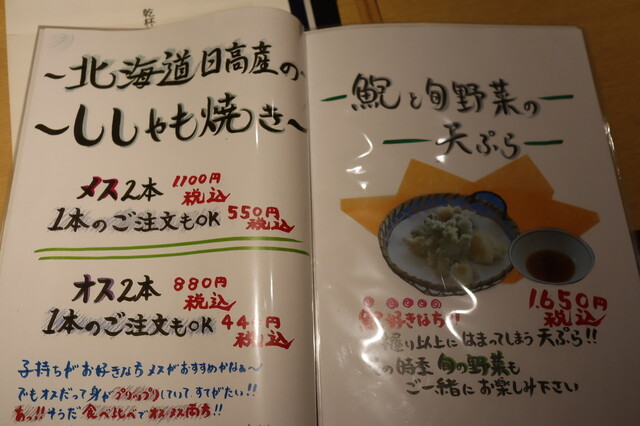 乾杯
〜北海道日高産の〜
〜ししゃも焼き〜
メス2本 1100円 税込
1本のご注文もOK 550円 税込
オス2本 880円 税込
1本のご注文もOK 44 円 税込
子持ちがお好きな方 メスがおすすめかなぁ〜
でもオスだって身がプリップリしていて、すてがたい!!
あっ!!そうだ 食べ比べで オスメス両方!!
鮑と旬野菜の
天ぷら
1,650円 税込
好きなら!!
握り以上にはまってしまう天ぷら!!
の時季 旬の野菜も
ご一緒にお楽しみ下さい